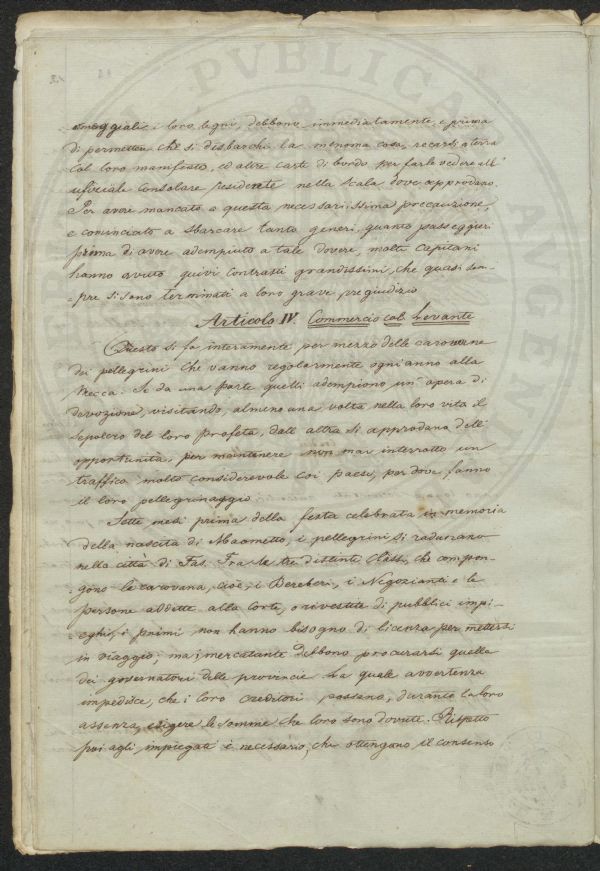 i loro legni, debbono immediatamente, e prima
di permettere che si disbarchi la menoma cosa, recarsi a terra
col loro manifesto, ed altre carte di bordo per farle vedere all'
ufficiale consolare residente nella scala dove approdano.
Per avere mancato a questa necessarissima precauzione,
e cominciato a sbarcare tanto generi, quanto passeggieri
prima di avere adempiuto a tale dovere, molti Capitani
hanno avuto quivi contrasti grandissimi, che quasi sem-
-pre si sono terminati a loro grave pregiudizio.
Articolo IV. Commercio col Levante
Questo si fa interamente per mezzo delle carovane
dei pellegrini che vanno regolarmente ogni anno alla
Mecca. Se da una parte quelli adempiono un' opera di
devozione, visitando, almeno una volta nella loro vita il
sepolcro del loro profeta, dall' altra si approdano dell'
opportunità, per mantenere non mai interrotto un
traffico molto considerevole coi paesi, per dove fanno
il loro pellegrinaggio.
Sette mesi prima della festa celebrata in memoria
della nascita di Maometto, i pellegrini si radunano
nella città di Fas. Fra le tre distinti classi, che compon-
-gono le carovana, cioè, i Bereberi, i Negozianti e le
persone addette alla Corte, o rivestite di pubblici impi-
-eghi, i primi non hanno bisogno di licenza per mettersi
in viaggio; ma i mercatanti debbono procurarsi quella
dei governatori delle provincie la quale avvertenza
impedisce, che i loro creditori possano, durante la loro
assenza, esigere le somme che loro sono dovute. Rispetto
poi agli impiegati è necessario, che ottengano il consenso
PVBLICA